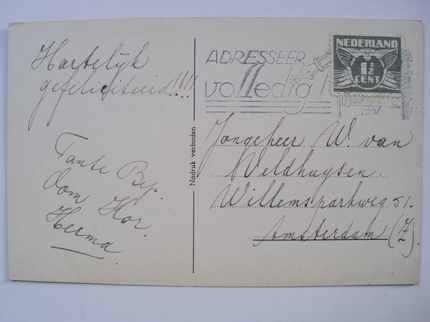 Hartelijk
gefeliciteerd!!!!
Tante Bep.
Oom Kor.
Herma.
Nadruk verboden
ADRESSEER
volledig!
NEDERLAND
1½
CENT
Jongeheer W. van
Veldhuysen.
Willemsparkweg 51.
Amsterdam (Z).